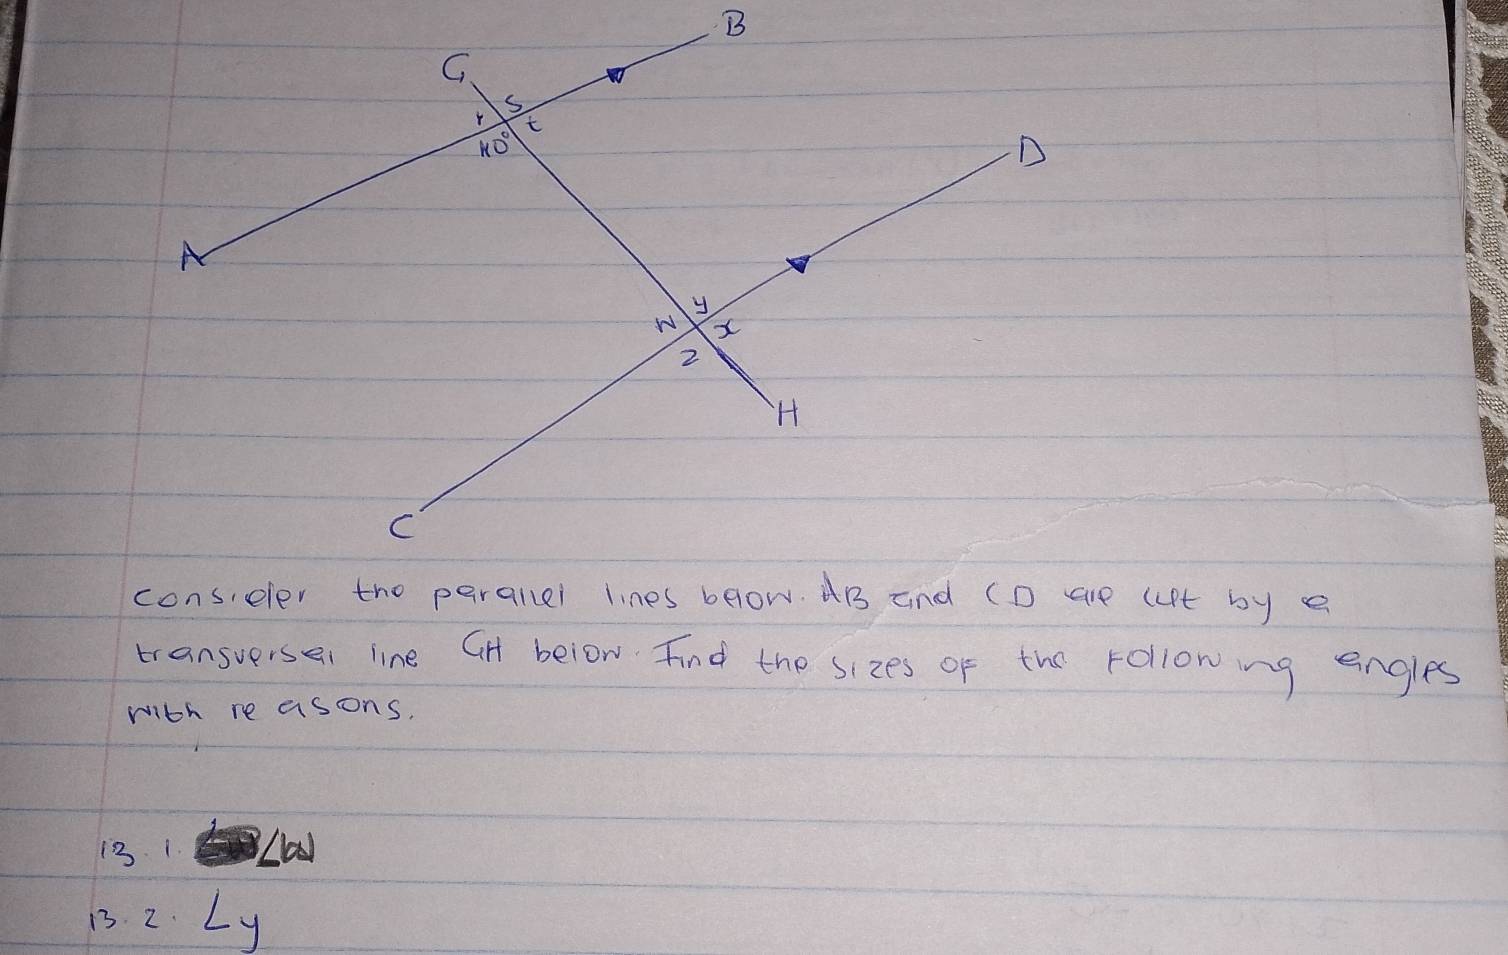 B
G
S
r
t
40°
D
A
y
W
x
z
H
C
consider the parallel lines below. AB and CD are cut by a
transversal line GH below. Find the sizes of the following angles
with reasons.
13.1. ∠w
13.2. ∠y